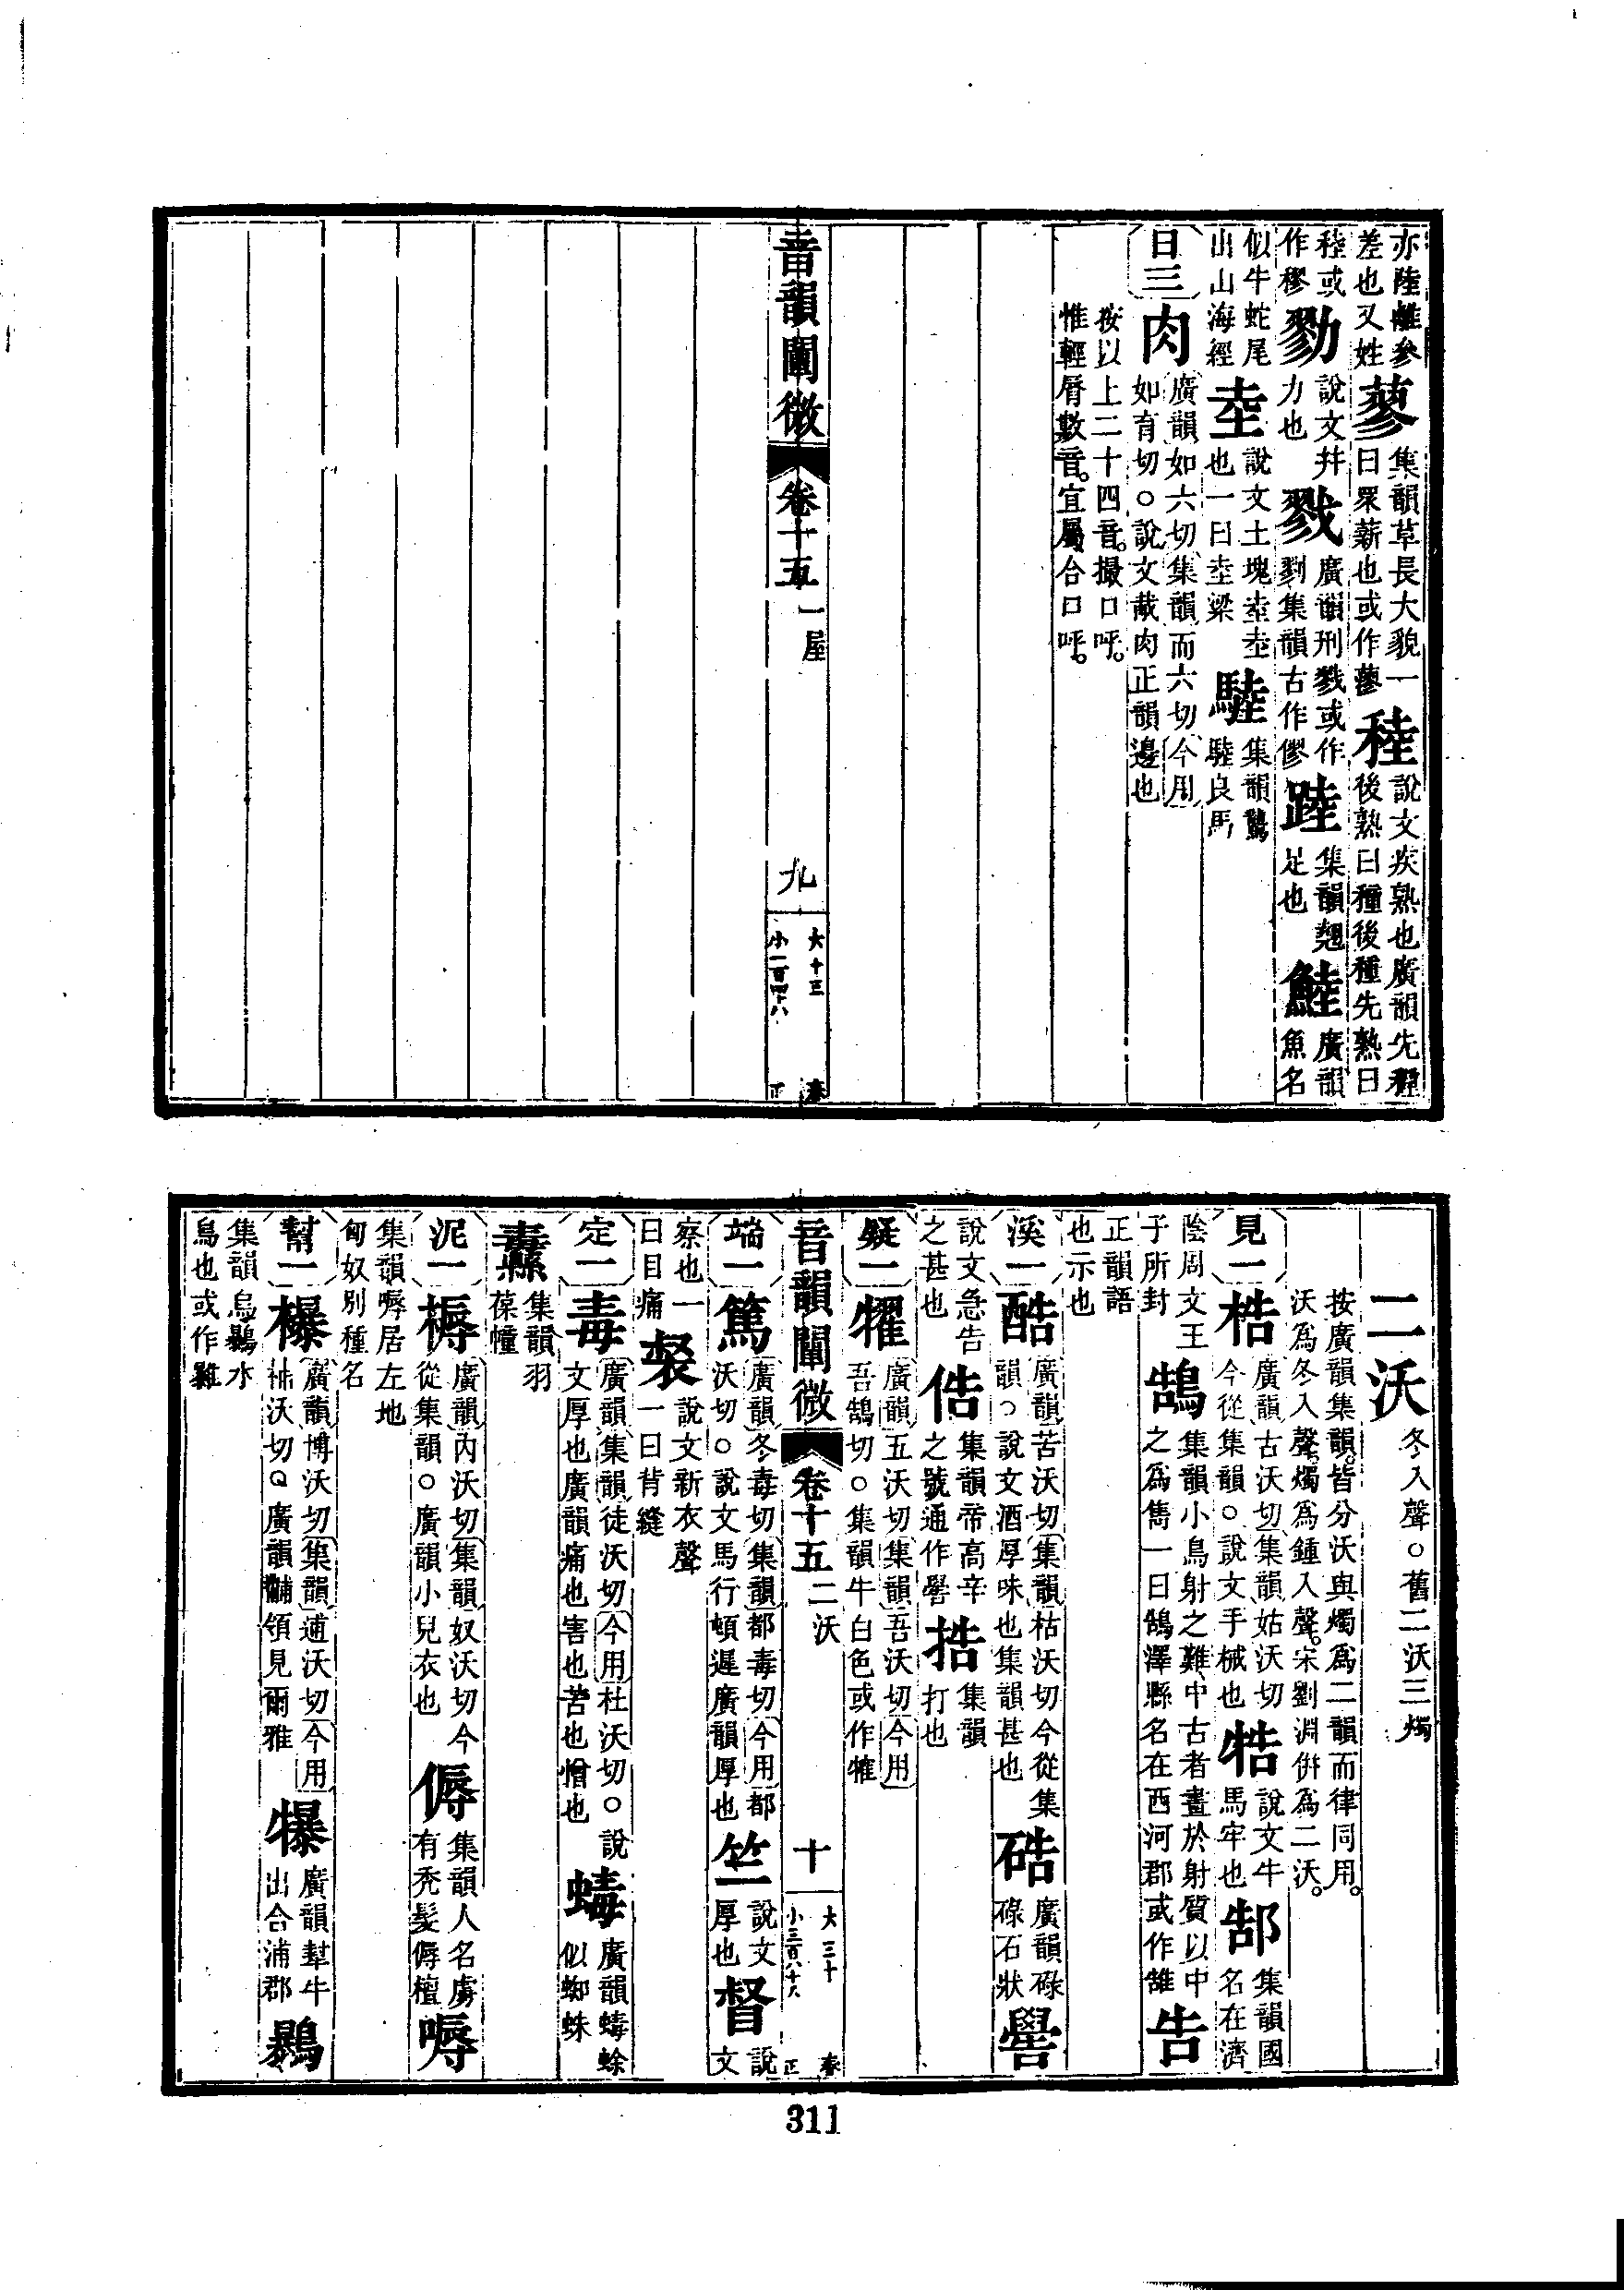 亦陸離參差也又姓蓼集韻草長大貌一曰眾薪也或作蔘稑說文疾熟也廣韻先種後熟曰穜後種先熟曰
稑或作穋勠說文并力也戮廣韻刑戮或作剹集韻古作僇踛集韻翹足也鯥廣韻魚名
似牛蛇尾出山海經坴說文土塊坴坴也一曰坴梁䮚集韻驡䮚良馬
日三肉廣韻如六切集韻而六切今用如育切○說文胾肉正韻邊也
按以上二十四音。撮口呼。惟輕脣數音。宜屬合口呼。
音韻闡微 卷十五 一屋 九 大十三 小二百四十八
二沃冬入聲○舊二沃三燭
按廣韻集韻。皆分沃與燭爲二韻而律同用。沃爲冬入聲。燭爲鍾入聲。宋劉淵併爲二沃。
見一梏廣韻古沃切集韻姑沃切今從集韻○說文手械也牿說文牛馬牢也郜集韻國名在濟
陰周文王子所封鵠集韻小鳥射之難中古者畫於射質以中之爲雋一曰鵠澤縣名在西河郡或作䧼告
正韻語也示也
溪一酷廣韻苦沃切集韻枯沃切今從集韻○說文酒厚味也集韻甚也硞廣韻硞碌石狀嚳
說文急告之甚也俈集韻帝高辛之號通作嚳捁集韻打也
疑一㸌廣韻五沃切集韻吾沃切今用吾鵠切○集韻牛白色或作㹊
音韻闡微 卷十五 二沃 十 大三十 小三百八十六
端一篤廣韻冬毒切集韻都毒切今用都沃切○說文馬行頓遲廣韻厚也竺說文厚也督說文
察也一曰目痛裻說文新衣聲一曰背縫
定一毒廣韻集韻徒沃切今用杜沃切○說文厚也廣韻痛也害也苦也憎也蝳廣韻蝳蜍似蜘蛛
纛集韻羽葆幢
泥一槈廣韻內沃切集韻奴沃切今從集韻○廣韻小兒衣也傉集韻人名虜有禿髮傉檀嗕
集韻嗕居左地匈奴別種名
幫一襮廣韻博沃切集韻逋沃切今用補沃切○廣韻黼領見爾雅犦廣韻犎牛出合浦郡鸔
集韻烏鸔水鳥也或作䨌
311